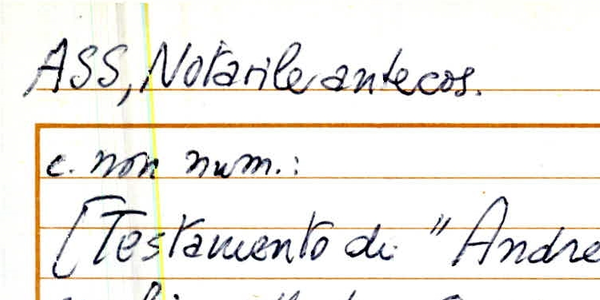 ASS, Notarile antecos.
c. non num.:
[Testamento di "Andre